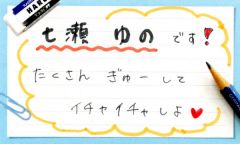 七瀬 ゆの です!
たくさん ぎゅーして
イチャイチャしよ♥